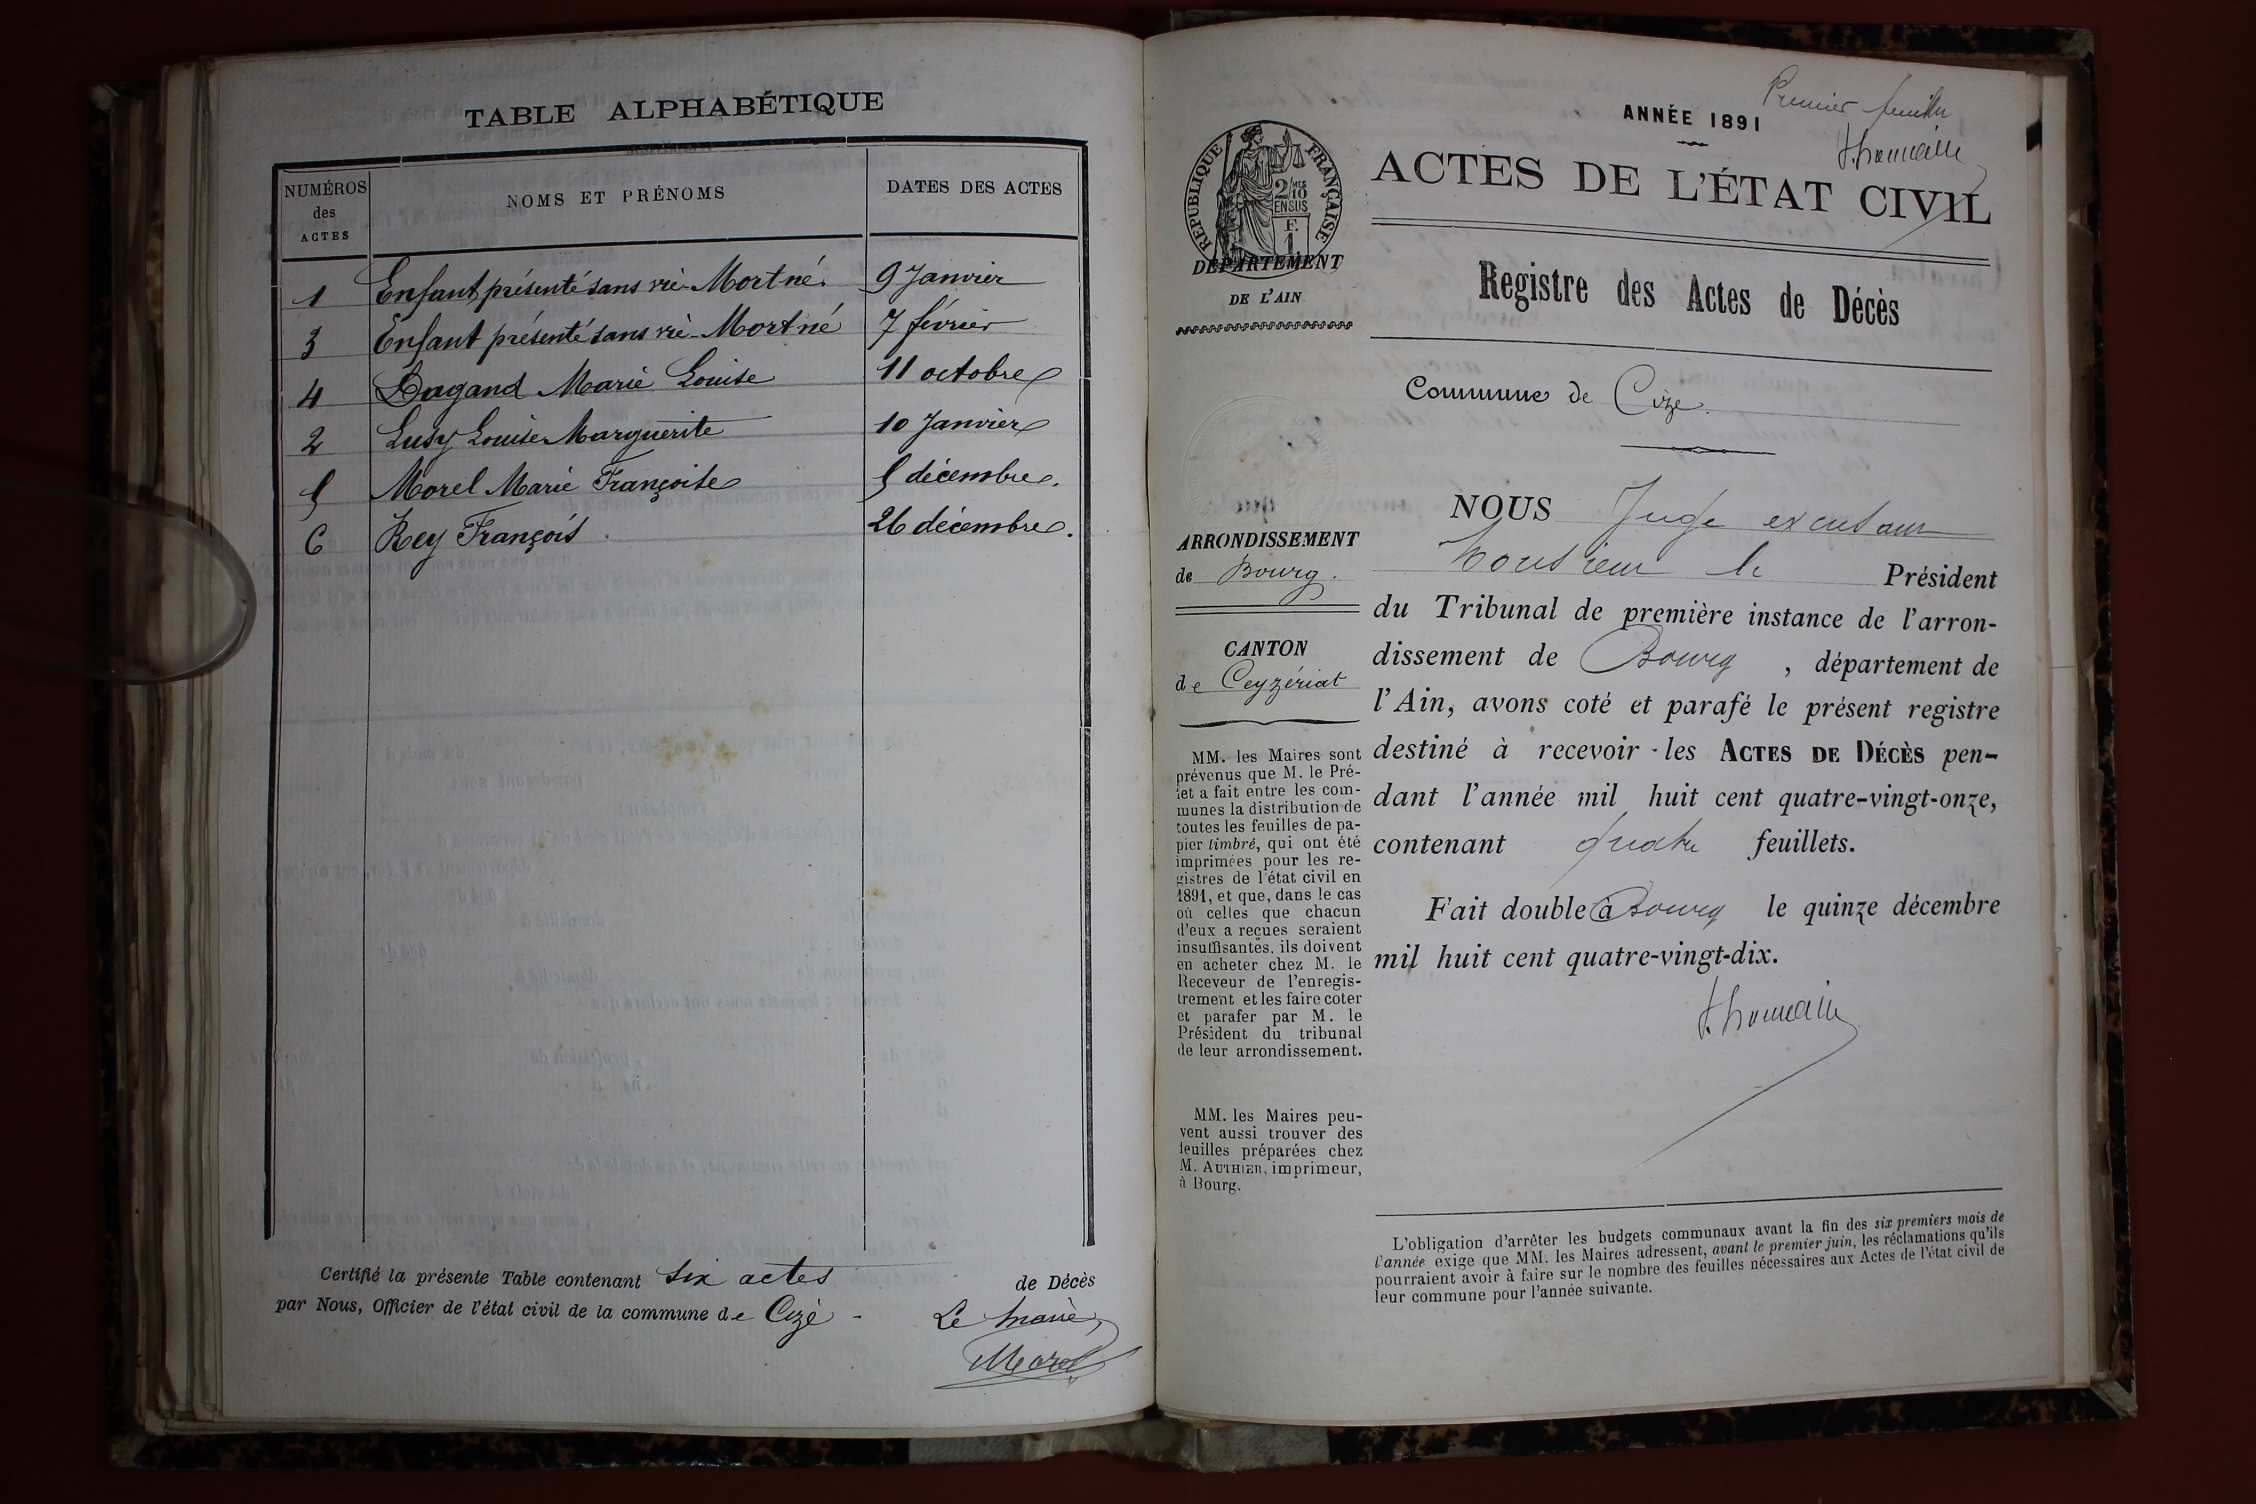 TABLE ALPHABÉTIQUE
NUMÉROS des ACTES
NOMS ET PRÉNOMS
DATES DES ACTES
1 Enfant présenté sans vie Mort-né. 9 Janvier
3 Enfant présenté sans vie Mort né 7 février
4 Dagand Marie Louise 11 octobre
2 Lusy Louise Marguerite 10 Janvier
5 Morel Marie Françoise 5 décembre.
6 Rey François. 26 décembre.
Certifié la présente Table contenant six actes de Décès
par Nous, Officier de l'état civil de la commune de Cize -
Le maire,
Morel
Premier feuillet
ANNÉE 1891
ACTES DE L'ÉTAT CIVIL
RÉPUBLIQUE FRANÇAISE
2/10 MES
EN SUS
F.
1.
DÉPARTEMENT
DE L'AIN
Registre des Actes de Décès
Commune de Cize.
ARRONDISSEMENT
de Bourg.
CANTON
de Ceyzériat
MM. les Maires sont
prévenus que M. le Pré-
fet a fait entre les com-
munes la distribution de
toutes les feuilles de pa-
pier timbré, qui ont été
imprimées pour les re-
gistres de l'état civil en
1891, et que, dans le cas
où celles que chacun
d'eux a reçues seraient
insuffisantes, ils doivent
en acheter chez M. le
Receveur de l'enregis-
trement et les faire coter
et parafer par M. le
Président du tribunal
de leur arrondissement.
MM. les Maires peu-
vent aussi trouver des
feuilles préparées chez
M. AUTHIER, imprimeur,
à Bourg.
NOUS Juge
Monsieur le Président
du Tribunal de première instance de l'arron-
dissement de Bourg, département de
l'Ain, avons coté et parafé le présent registre
destiné à recevoir les ACTES DE DÉCÈS pen-
dant l'année mil huit cent quatre-vingt-onze,
contenant quatre feuillets.
Fait double à Bourg le quinze décembre
mil huit cent quatre-vingt-dix.
L'obligation d'arrêter les budgets communaux avant la fin des six premiers mois de
l'année exige que MM. les Maires adressent, avant le premier juin, les réclamations qu'ils
pourraient avoir à faire sur le nombre des feuilles nécessaires aux Actes de l'état civil de
leur commune pour l'année suivante.